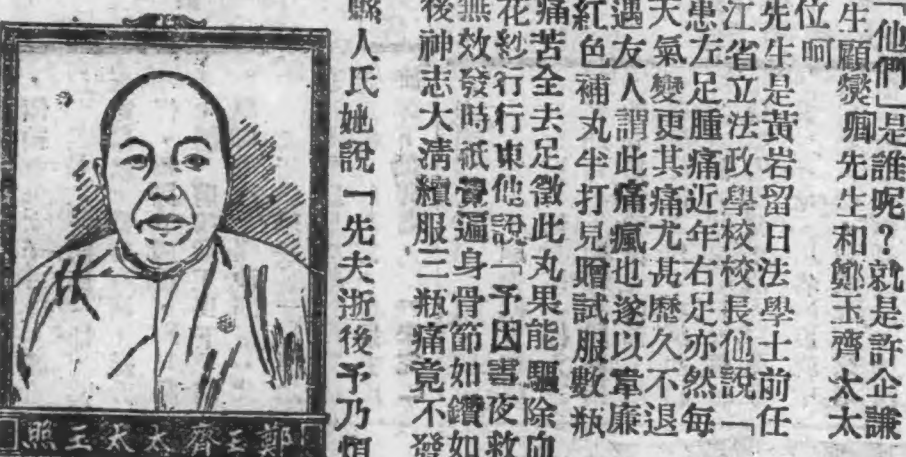 「他們」是誰呢？就是許企謙
生顧爕卿先生和鄭玉齊太太
位呵
先生是黃岩留日法學士前任
江省立法政學校校長他說「
患左足腫痛近年右足亦然每
天氣變更其痛尤甚歷久不退
遇友人謂此痛瘋也遂以韋廉
紅色補丸半打見贈試服數瓶
痛苦全去足徵此丸果能驅除血
花紗行行東他說「予因晝夜救
無效發時祇覺遍身骨節如鑽如
後神志大清續服三瓶痛竟不發
縣人氏她說「先夫浙後予乃煩
鄭玉齊太太玉照